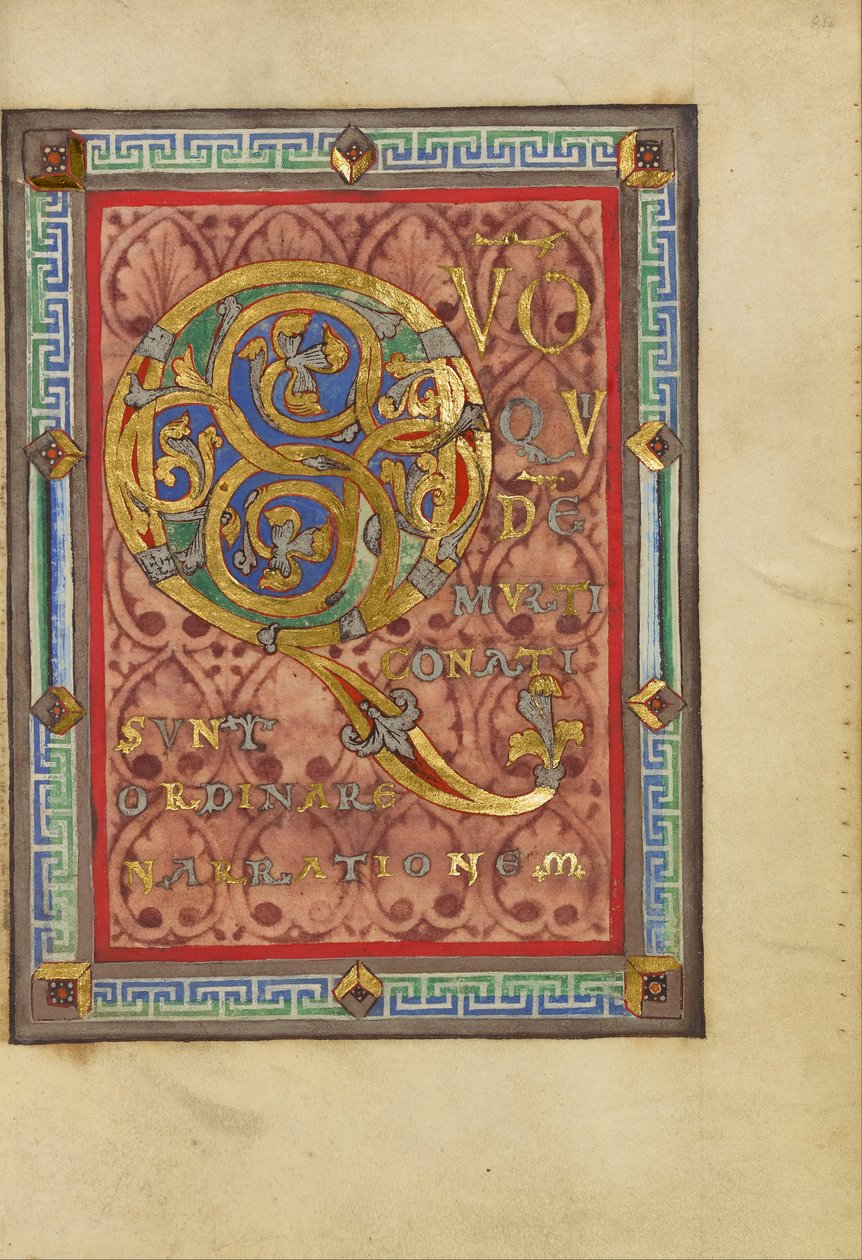 84
QVŌ
QVI
DĒ
MVLTI
CONATI
SVNT
ORDINARE
NARRATIONEM